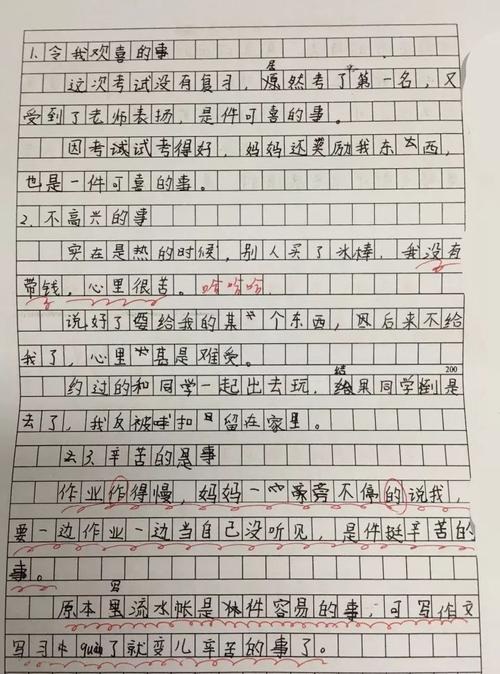 1.令我欢喜的事
这次考试没有复习，居然考了第一名，又
受到了老师表扬，是件可喜的事。
因考试试考得好，妈妈还奖励我东西，
也是一件可喜的事。
2.不高兴的事
实在是热的时候，别人买了冰棒，我没有
带钱，心里很苦。哈哈哈
说好了要给我的某个东西，因后来不给
我了，心里甚是难受。
200
约过的和同学一起出去玩，结果同学倒是
去了，我反被扣留在家里。
辛苦的是事
作业作得慢，妈妈一旁不停的说我，
要一边作业一边当自己没听见，是件挺辛苦的
事。
原本写流水帐是件容易的事，可写作文
写习中quàn了就变儿辛苦的事了。